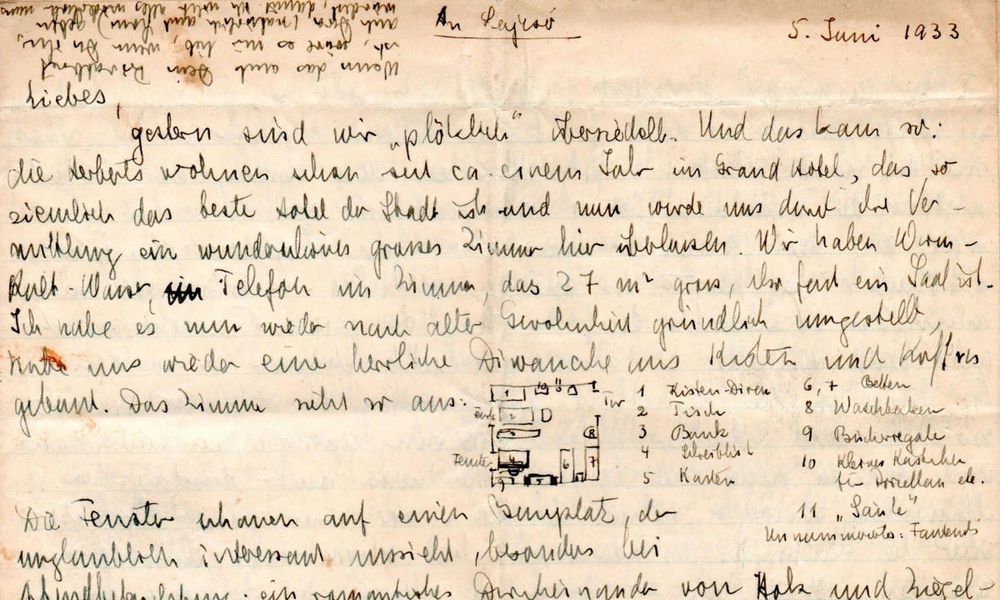 An
5. Juni 1933
Wenn das auch Dein
ist, wäre es mir lieb, wenn Du ihr,
auch Dein (natürlich auch
alles
Liebes,
gestern sind wir „plötzlich“ übersiedelt. Und das kam so:
die Herberts wohnen schon seit ca. einem Jahr im Grand Hotel, das so
ziemlich das beste Hotel der Stadt ist und nun wurde uns durch ihre Ver-
mittlung ein wunderschönes grosses Zimmer hier überlassen. Wir haben Warm-
Kalt-Wasser, Telefon im Zimmer, das 27 m² gross also fast ein Saal ist.
Ich habe es nun wieder nach alter Gewohnheit gründlich umgestellt,
habe uns wieder eine herrliche Diwanecke aus Kisten und Koffern
gebaut. Das Zimmer sieht so aus:
Tür
Fenster
1 Kisten-Diwan
2 Tisch
3 Bank
4 Schreibtisch
5 Kasten
6, 7 Betten
8 Waschbecken
9 Bücherregale
10 kleines Kästchen
für Porzellan etc.
11 „Säule“
Un nummeriertes: Fauteuils
Die Fenster schauen auf einen Bauplatz, der
unglaublich interessant aussieht, besonders bei
Abendbeleuchtung: ein romantisches Durcheinander von Holz und Ziegel-